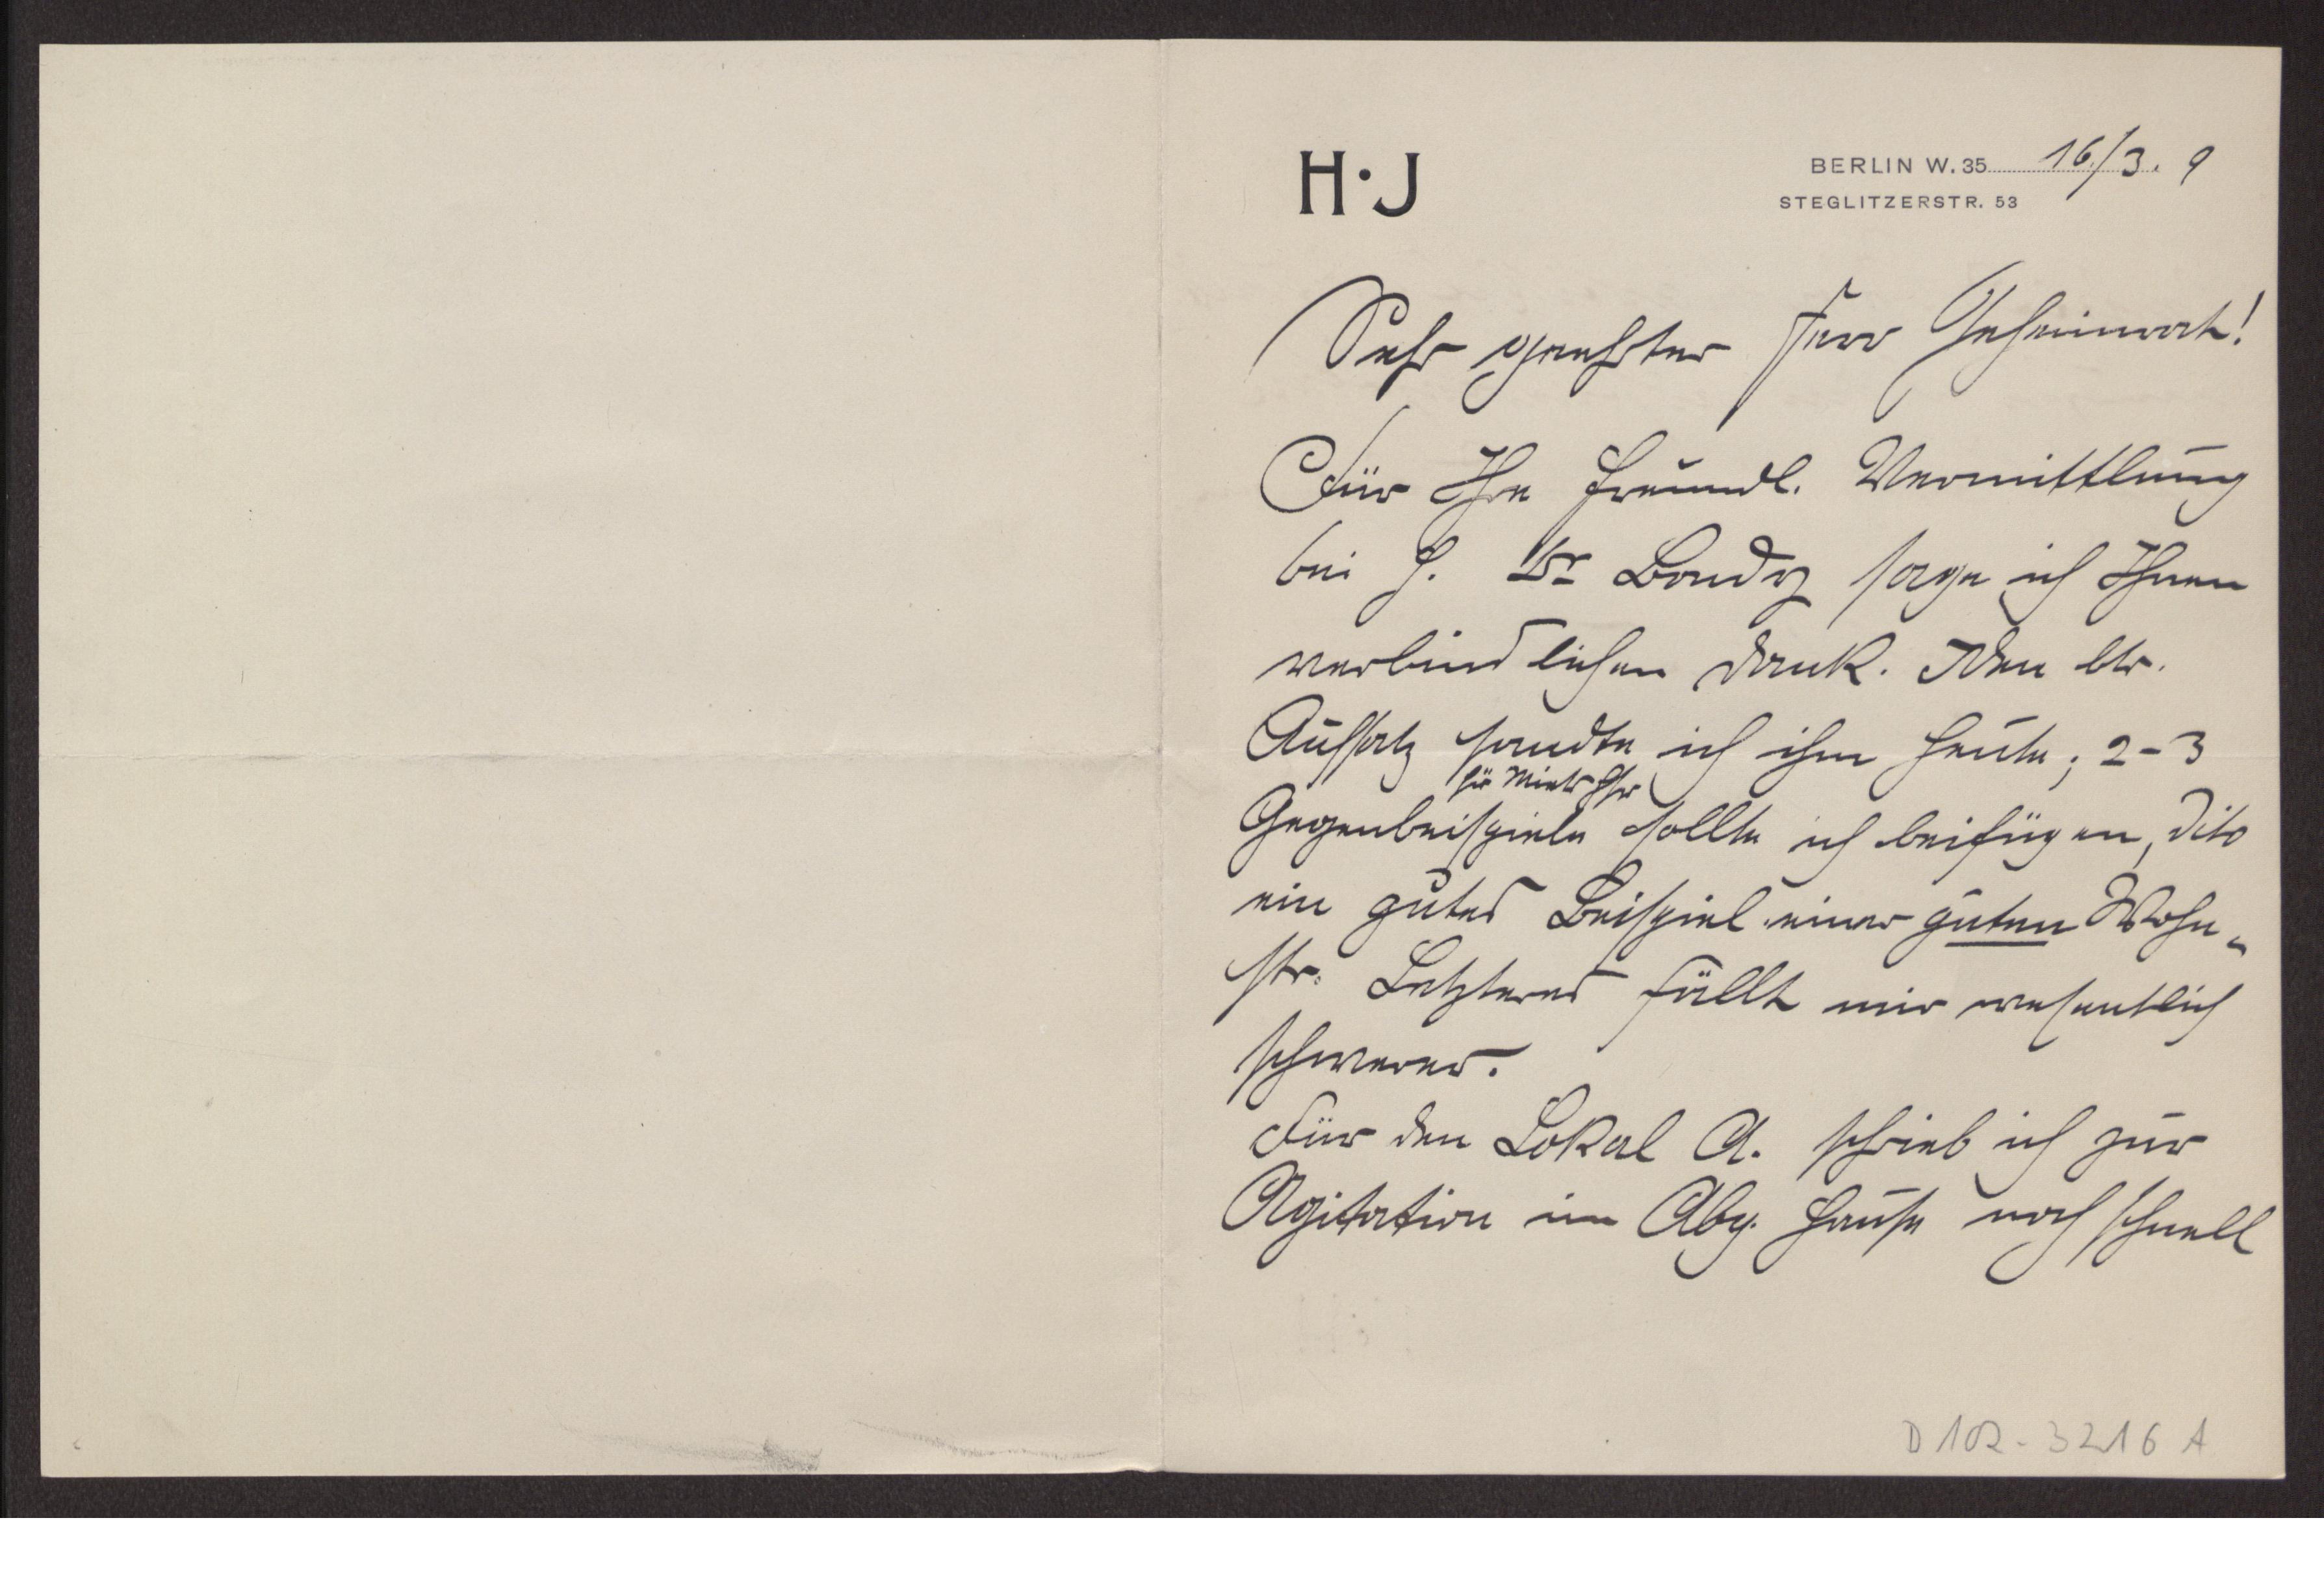 H·J
BERLIN W. 35 16./3. 9
STEGLITZERSTR. 53
Sehr geehrter Herr Geheimrat!
Für Ihre freundl. Vermittlung
bei H. Dr Bondy sage ich Ihnen
verbindlichen Dank. Den btr.
Aufsatz sandte ich ihm heute; 2-3
für Miets
Gegenbeispiele sollte ich beifügen, dito
ein gutes Beispiel einer guten Wohn-
str. Letzteres fällt mir wesentlich
schwerer.
Für den Lokal A. schrieb ich zur
Agitation im Abg. Hause noch schnell
D 102-3216 A